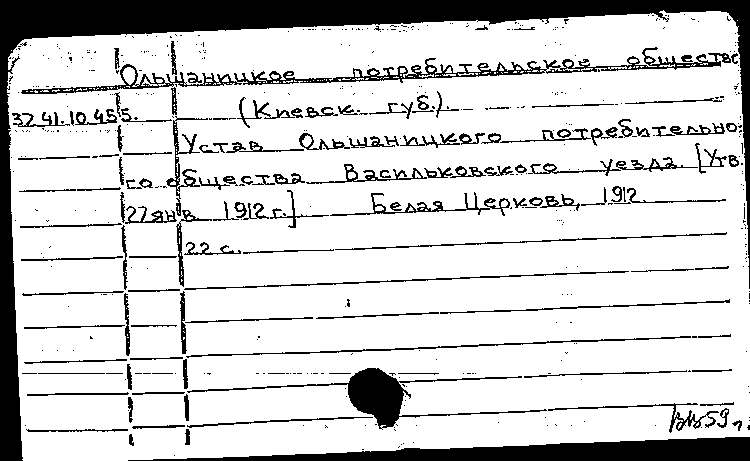 Ольшаницкое потребительское общество
32.41.10.455. (Киевск. губ.).
Устав Ольшаницкого потребительно-
го общества Васильковского уезда. [Утв.
27 янв. 1912 г.] Белая Церковь, 1912.
22 с.